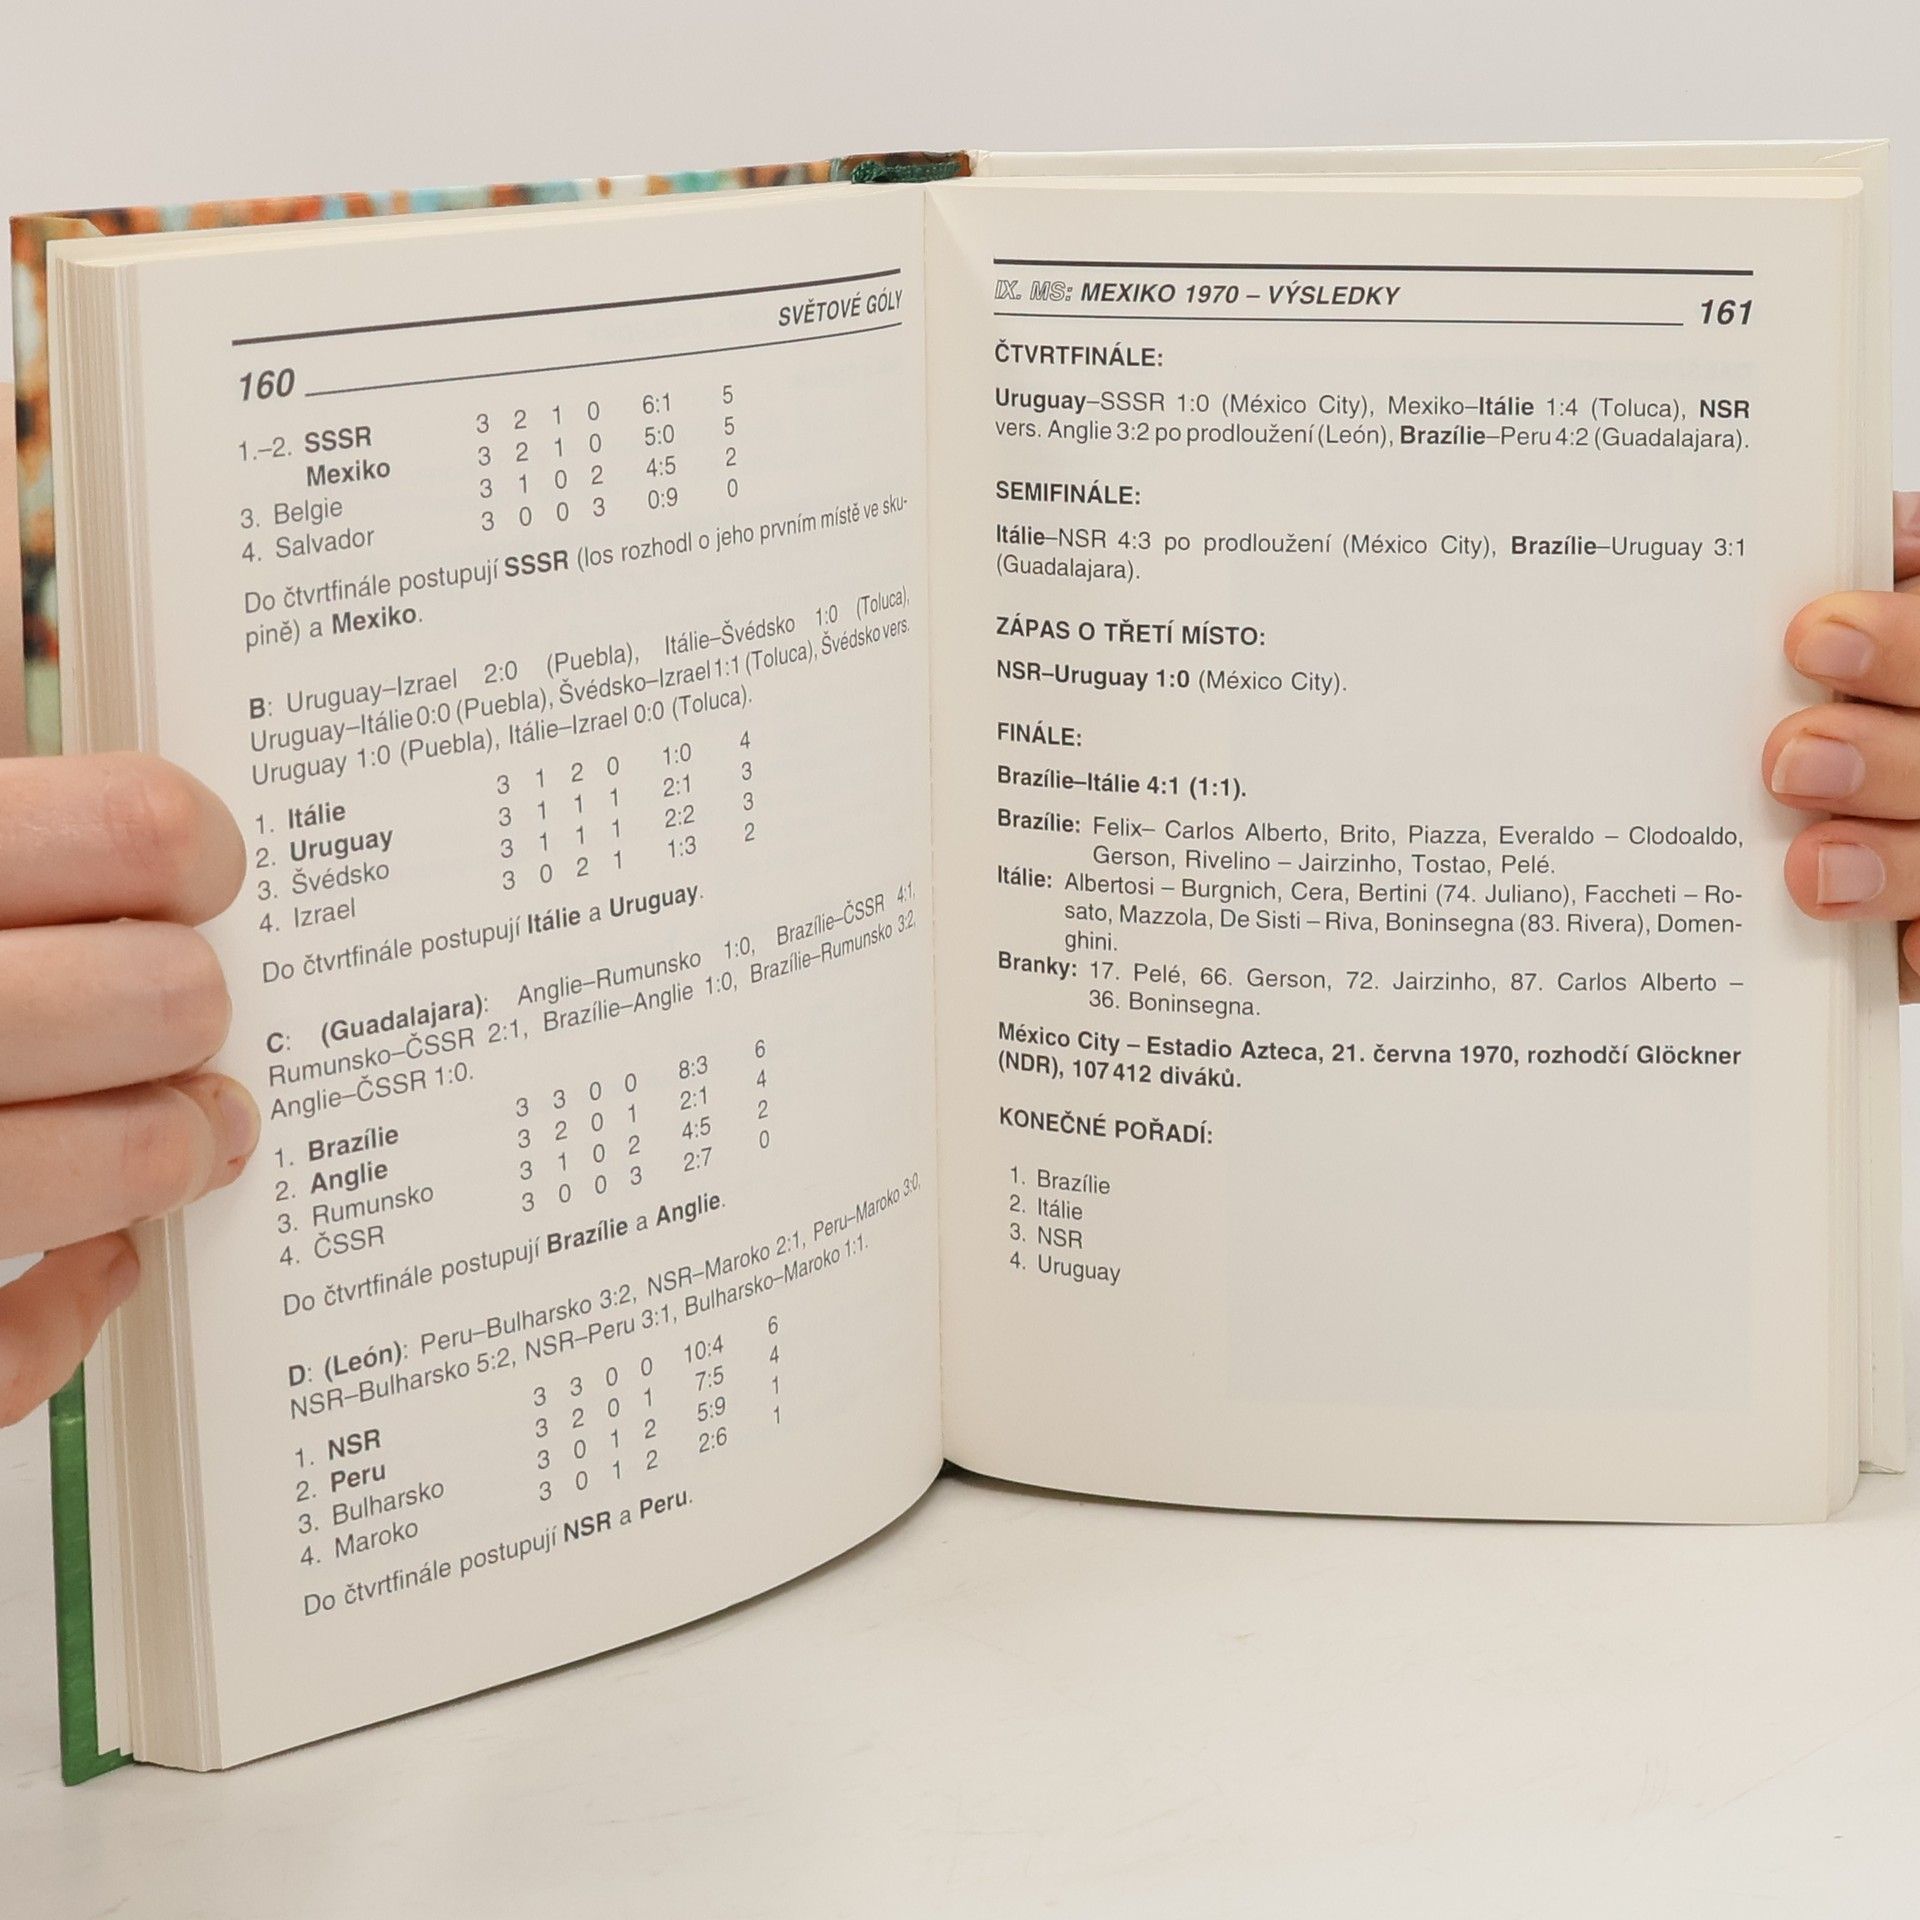 SVĚTOVÉ GÓLY
160
1.–2. SSSR 3 2 1 0 6:1 5
Mexiko 3 2 1 0 5:0 5
3. Belgie 3 1 0 2 4:5 2
4. Salvador 3 0 0 3 0:9 0
Do čtvrtfinále postupují SSSR (los rozhodl o jeho prvním místě ve sku-
pině) a Mexiko.
B: Uruguay–Izrael 2:0 (Puebla), Itálie–Švédsko 1:0 (Toluca),
Uruguay–Itálie 0:0 (Puebla), Švédsko–Izrael 1:1 (Toluca), Švédsko vers.
Uruguay 1:0 (Puebla), Itálie–Izrael 0:0 (Toluca).
1. Itálie 3 1 2 0 1:0 4
2. Uruguay 3 1 1 1 2:1 3
3. Švédsko 3 1 1 1 2:2 3
4. Izrael 3 0 2 1 1:3 2
Do čtvrtfinále postupují Itálie a Uruguay.
C: (Guadalajara): Anglie–Rumunsko 1:0, Brazílie–ČSSR 4:1,
Rumunsko–ČSSR 2:1, Brazílie–Anglie 1:0, Brazílie–Rumunsko 3:2,
Anglie–ČSSR 1:0.
1. Brazílie 3 3 0 0 8:3 6
2. Anglie 3 2 0 1 2:1 4
3. Rumunsko 3 1 0 2 4:5 2
4. ČSSR 3 0 0 3 2:7 0
Do čtvrtfinále postupují Brazílie a Anglie.
D: (León): Peru–Bulharsko 3:2, NSR–Maroko 2:1, Peru–Maroko 3:0,
NSR–Bulharsko 5:2, NSR–Peru 3:1, Bulharsko–Maroko 1:1.
1. NSR 3 3 0 0 10:4 6
2. Peru 3 2 0 1 7:5 4
3. Bulharsko 3 0 1 2 5:9 1
4. Maroko 3 0 1 2 2:6 1
Do čtvrtfinále postupují NSR a Peru.
IX. MS: MEXIKO 1970 – VÝSLEDKY
161
ČTVRTFINÁLE:
Uruguay–SSSR 1:0 (México City), Mexiko–Itálie 1:4 (Toluca), NSR
vers. Anglie 3:2 po prodloužení (León), Brazílie–Peru 4:2 (Guadalajara).
SEMIFINÁLE:
Itálie–NSR 4:3 po prodloužení (México City), Brazílie–Uruguay 3:1
(Guadalajara).
ZÁPAS O TŘETÍ MÍSTO:
NSR–Uruguay 1:0 (México City).
FINÁLE:
Brazílie–Itálie 4:1 (1:1).
Brazílie: Felix– Carlos Alberto, Brito, Piazza, Everaldo – Clodoaldo,
Gerson, Rivelino – Jairzinho, Tostao, Pelé.
Itálie: Albertosi – Burgnich, Cera, Bertini (74. Juliano), Faccheti – Ro-
sato, Mazzola, De Sisti – Riva, Boninsegna (83. Rivera), Domen-
ghini.
Branky: 17. Pelé, 66. Gerson, 72. Jairzinho, 87. Carlos Alberto –
36. Boninsegna.
México City – Estadio Azteca, 21. června 1970, rozhodčí Glöckner
(NDR), 107 412 diváků.
KONEČNÉ POŘADÍ:
1. Brazílie
2. Itálie
3. NSR
4. Uruguay